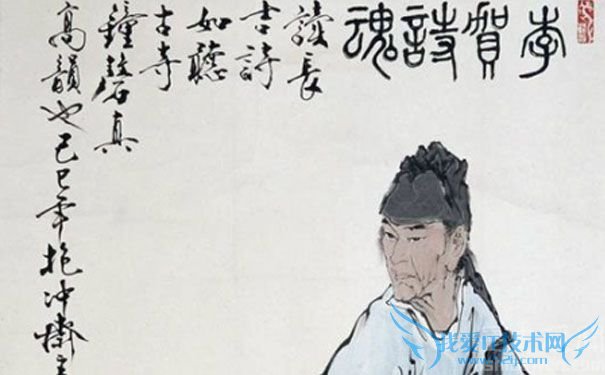 李賀詩魂
讀長
吉詩
如聽
古寺
鐘磬真
高韻也己巳年抱冲齋主
我爱IT技术网